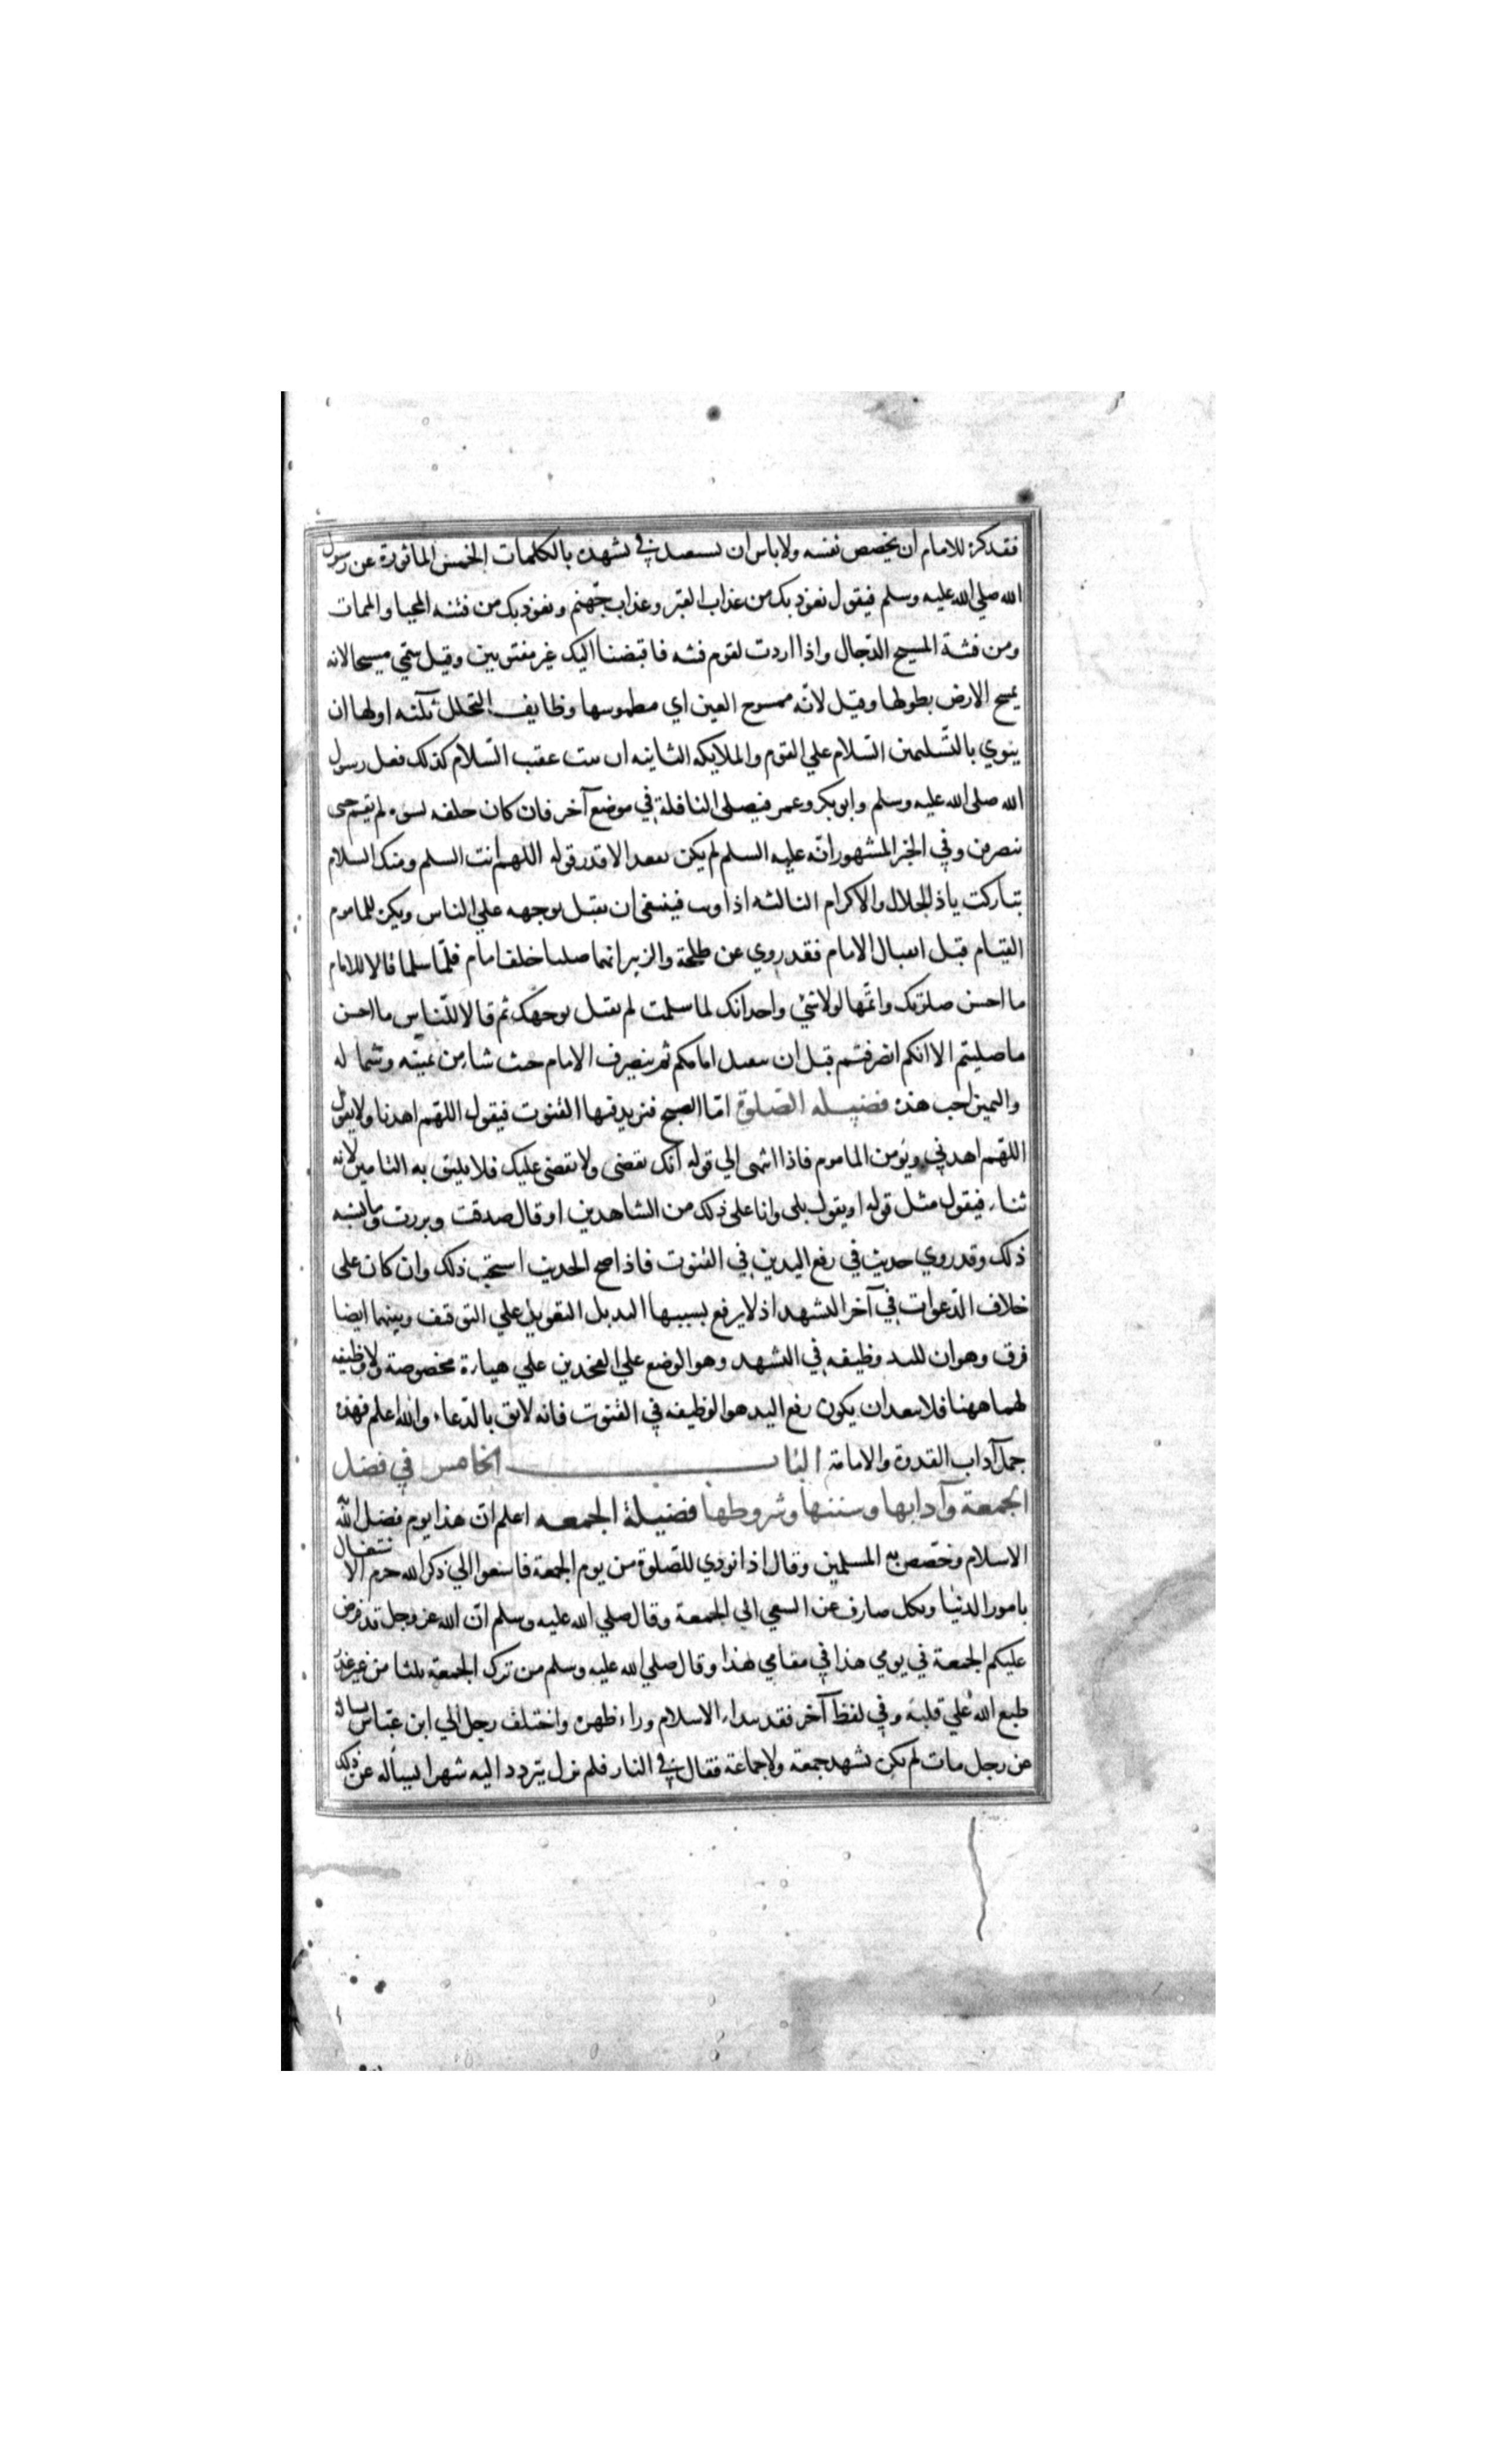 فقد كره للامام ان يخصص نفسه ولا باس ان يستعيذ في تشهده بالكلمات الخمس الماثورة عن رسول
الله صلي الله عليه وسلم فيقول نعوذ بك من عذاب القبر وعذاب جهنم ونعوذ بك من فتنه المحيا والممات
ومن فتنة المسيح الدجال واذا اردت لقوم فتنه فاقبضنا اليك غير مفتونين وقيل سمي مسيحا لانه
يمسح الارض بطولها وقيل لانه ممسوح العين اي مطموسها وظايف التحلل ثلثه اولها ان
ينوي بالتسليمين السلام علي القوم والملايكه الثانيه ان يثبت عقب السلام كذلك فعل رسول
الله صلى الله عليه وسلم وابو بكر وعمر فيصلى النافلة في موضع آخر فان كان خلفه نسوه لم يقم حتى
ينصرفن وفي الخبر المشهور انه عليه السلم لم يكن يقعد الا قدر قوله اللهم انت السلم ومنك السلام
تباركت ياذ الجلال والاكرام الثالثه اذا وثب فينبغى ان يقبل بوجهه علي الناس ويكره للماموم
القيام قبل اقبال الامام فقد روي عن طلحة والزبير انهما صليا خلف امام فلما سلما قالا للامام
ما احسن صلوتك واتمها لولا شي واحد انك لما سلمت لم تقبل بوجهك ثم قالا للناس ما احسن
ما صليتم الا انكم انصرفتم قبل ان يقبل امامكم ثم ينصرف الامام حيث شا من يمينه وشماله
واليمين احب هذه فضيله الصلوة اما الصبح فنزيد فيها القنوت فيقول اللهم اهدنا ولا يقول
اللهم اهدني ويؤمن الماموم فاذا انتهى الي قوله انك تقضى ولا يقضى عليك فلا يليق به التامين لانه
ثناء فيقول مثل قوله او يقول بلى وانا على ذلك من الشاهدين او قال صدقت وبررت وما يشبه
ذلك وقد روي حديث في رفع اليدين في القنوت فاذا صح الحديث استحب ذلك وان كان على
خلاف الدعوات في آخر التشهد اذ لا يرفع بسببها اليد بل التعويل علي التوقف وبينهما ايضا
فرق وهو ان لليد وظيفه في التشهد وهو الوضع علي الفخذين علي هياة مخصوصة ولا وظيفه
لهما ههنا فلا يبعد ان يكون رفع اليد هو الوظيفه في القنوت فانه لايق بالدعاء والله اعلم فهذه
جمل آداب القدوة والامامة الباب الخامس في فضل
الجمعة وآدابها وسننها وشروطها فضيلة الجمعه اعلم ان هذا يوم فضل الله
الاسلام وخصص به المسلمين وقال اذا نودي للصلوة من يوم الجمعة فاسعوا الي ذكر الله حرم الاشتغال
بامور الدنيا وبكل صارف عن السعي الي الجمعة وقال صلي الله عليه وسلم ان الله عز وجل قد فرض
عليكم الجمعة في يومي هذا في مقامي هذا وقال صلي الله عليه وسلم من ترك الجمعة ثلثا من غير عذر
طبع الله علي قلبه وفي لفظ آخر فقد نبذ الاسلام وراء ظهره واختلف رجل الي ابن عباس يساله
عن رجل مات لم يكن يشهد جمعة ولا جماعة فقال في النار فلم يزل يتردد اليه شهرا يسأله عن ذلك